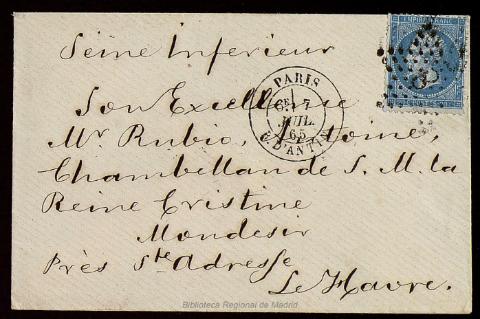 EMPIRE FRANC
Seine Inferieur
PARIS
6E
JUIL.
65
C. D'ANTIN
Son Excellencie
Mr. Rubio, Antoine,
Chambellan de S. M. la
Reine Cristine
Mondesir
Près Ste Adresse
Le Havre.
Biblioteca Regional de Madrid